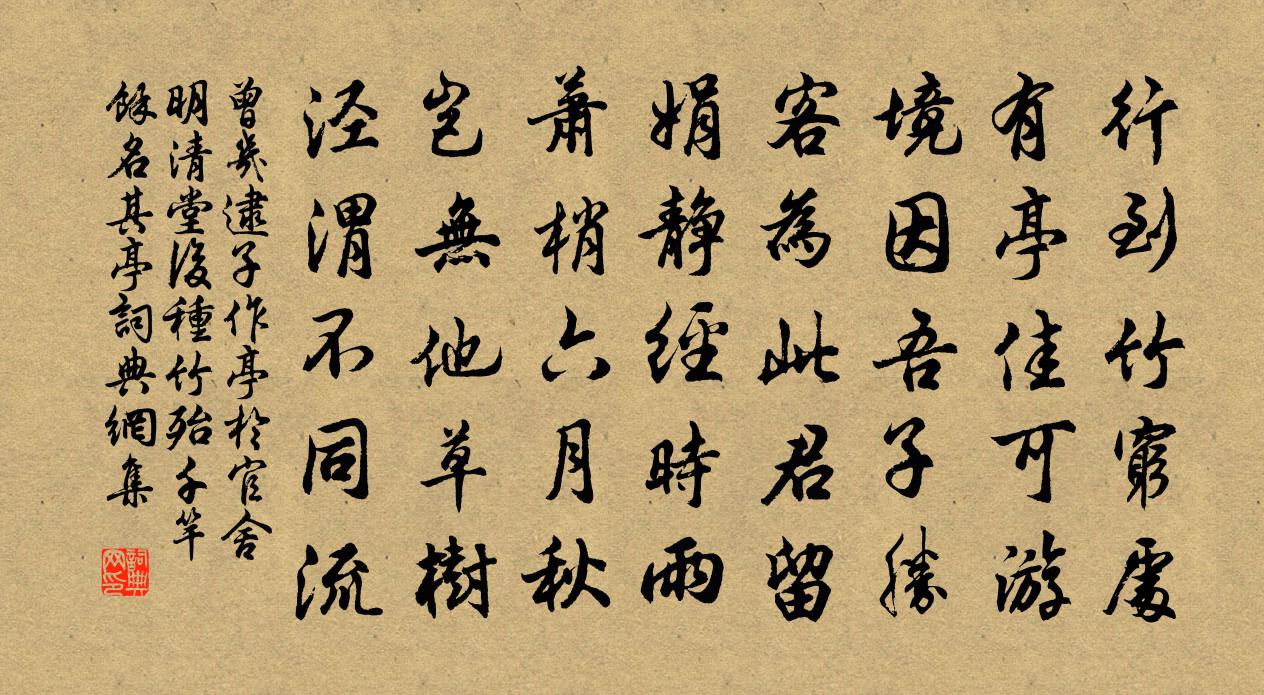 行到竹窮處
有亭佳可游
境因吾子勝
客為此君留
娟靜經時雨
蕭梢六月秋
豈無他草樹
涇渭不同流
曾幾逮子作亭於官舍
明清堂後種竹殆千竿
餘名其亭詞典網集
詞典
网印